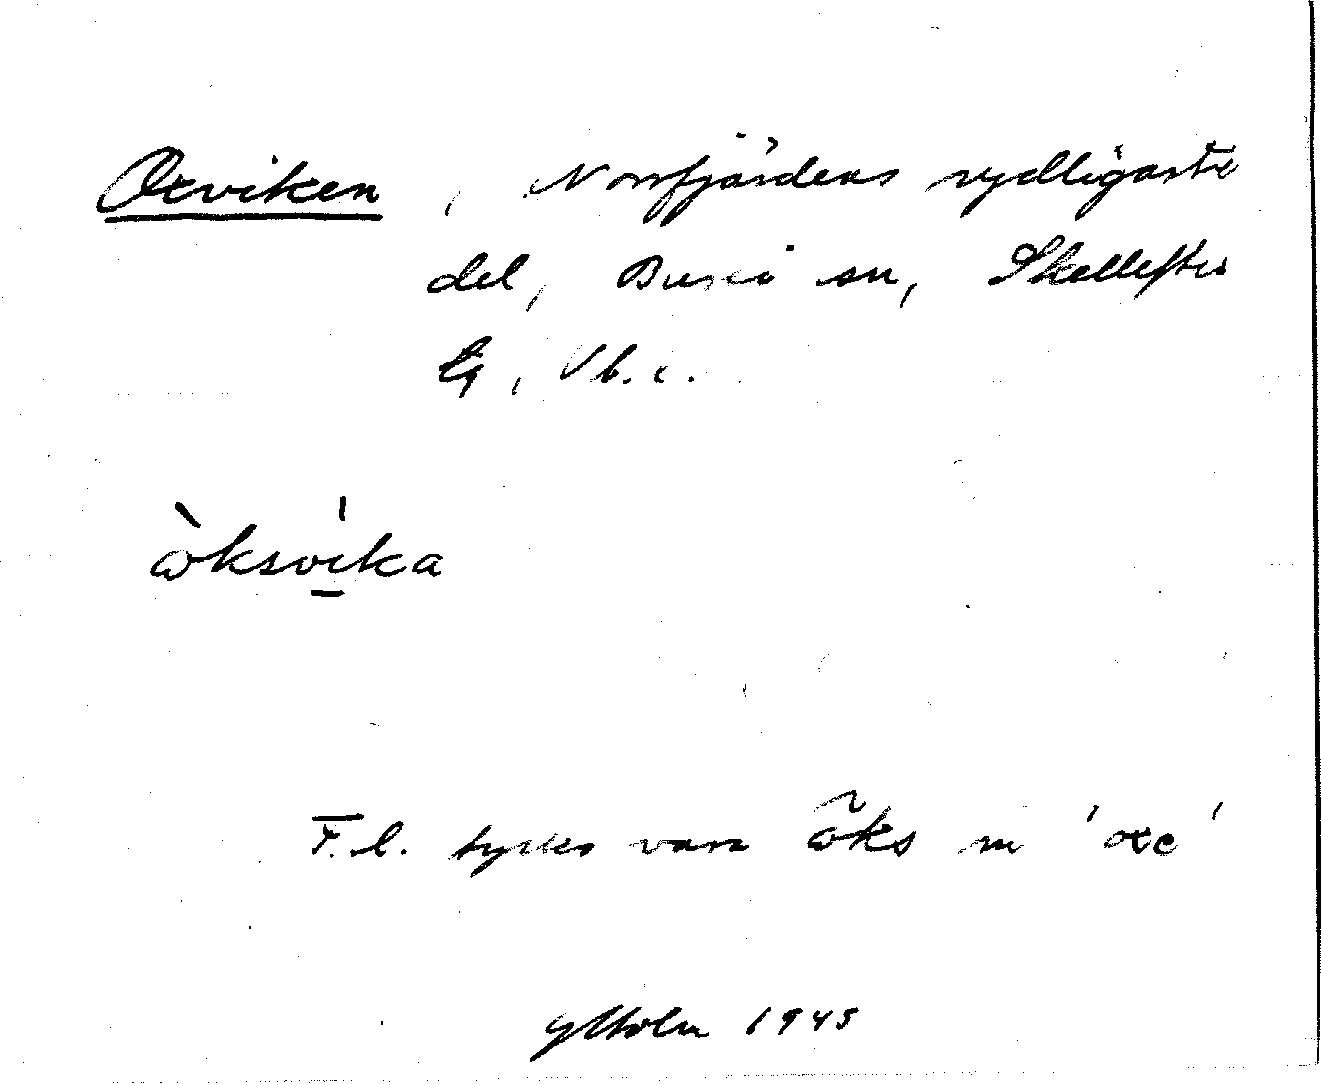 Oxviken, Norrfjärdens sydligaste
del, Bureå sn, Skellefteå
tg, Vb. l.
ὼksvi̱ka
F.l. tyckes vara ω̃ks m 'oxe'
GHolm 1945